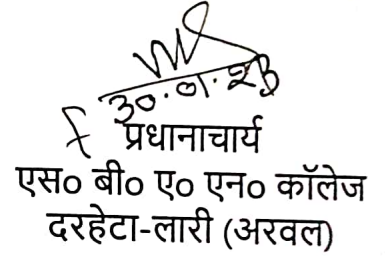 30.01.23
प्रधानाचार्य
एस० बी० ए० एन० कॉलेज
दरहेटा-लारी (अरवल)